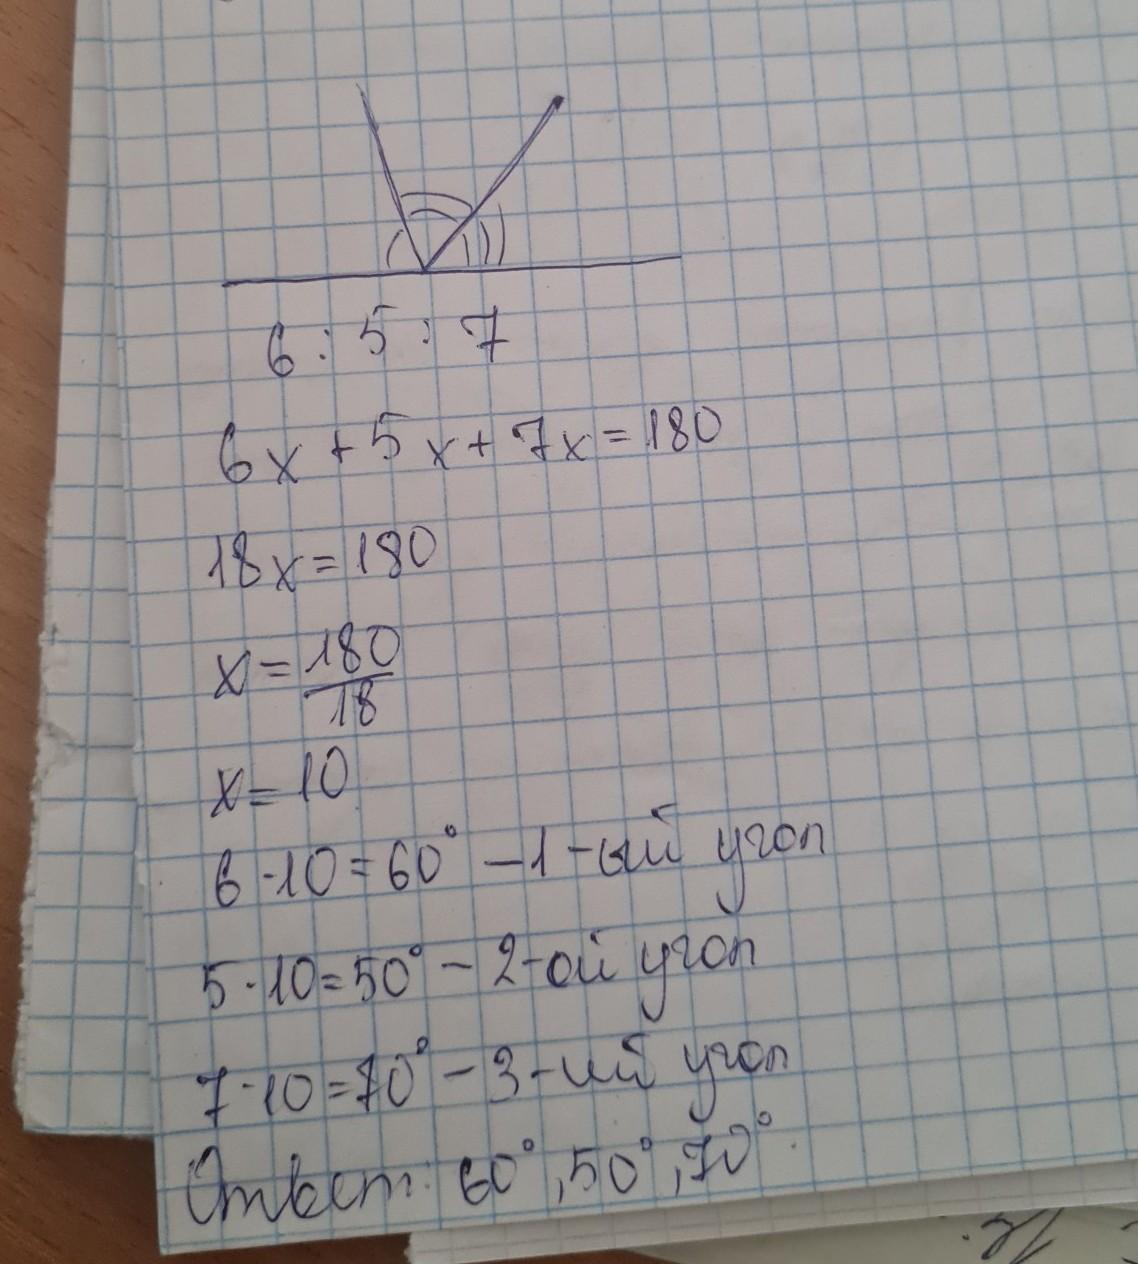 6 : 5 : 7
6x + 5x + 7x = 180
18x = 180
x = 180/18
x = 10
6 · 10 = 60° – 1-ый угол
5 · 10 = 50° – 2-ой угол
7 · 10 = 70° – 3-ий угол
Ответ: 60°, 50°, 70°.